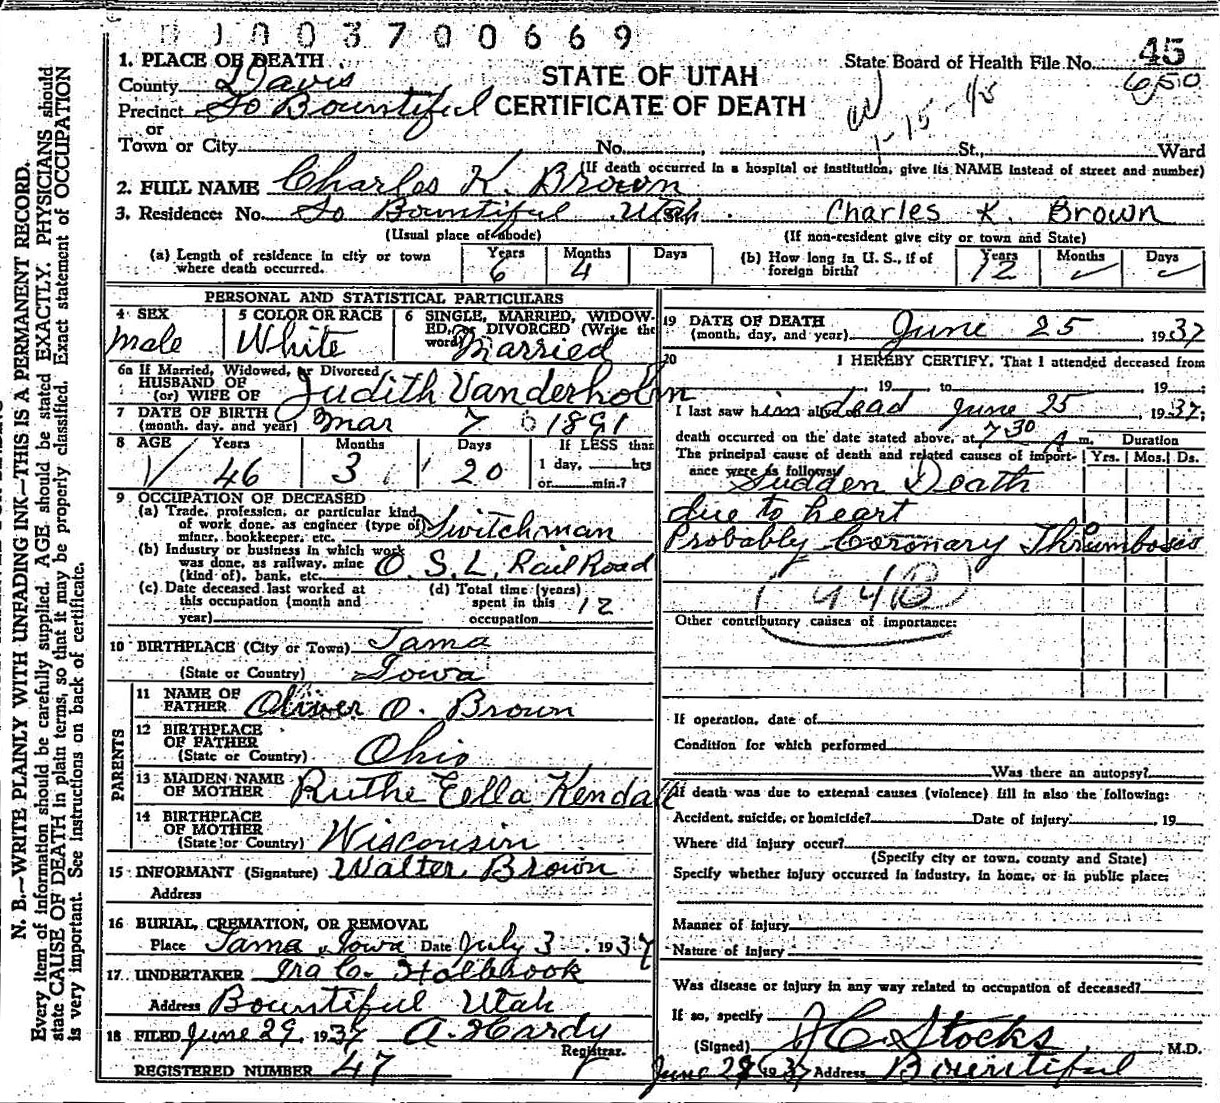 0 1 0 0 3 7 0 0 6 6 9
State Board of Health File No. 45
650
1. PLACE OF DEATH
County Davis
STATE OF UTAH
CERTIFICATE OF DEATH
Precinct So Bountiful
1-15-45
or
Town or City No. , St., Ward
(If death occurred in a hospital or institution, give its NAME instead of street and number)
2. FULL NAME Charles K. Brown
3. Residence: No. So Bountiful Utah. Charles K. Brown
(Usual place of abode) (If non-resident give city or town and State)
(a) Length of residence in city or town where death occurred. Years 6 Months 4 Days
(b) How long in U. S., if of foreign birth? Years 12 Months ✓ Days ✓
PERSONAL AND STATISTICAL PARTICULARS
4 SEX Male
5 COLOR OR RACE White
6 SINGLE, MARRIED, WIDOWED, or DIVORCED (Write the word) Married
6a If Married, Widowed, or Divorced
HUSBAND OF
(or) WIFE OF Judith Vanderholm
7 DATE OF BIRTH
(month, day, and year) Mar 7 1891
8 AGE Years 46 Months 3 Days 20 If LESS than
1 day, hrs
or min.?
9 OCCUPATION OF DECEASED
(a) Trade, profession, or particular kind
of work done, as engineer (type of)
miner, bookkeeper, etc. Switchman
(b) Industry or business in which work
was done, as railway, mine
(kind of), bank, etc. O. S. L. Rail Road
(c) Date deceased last worked at
this occupation (month and
year)
(d) Total time (years)
spent in this
occupation 12
10 BIRTHPLACE (City or Town) Tama
(State or Country) Iowa
PARENTS
11 NAME OF
FATHER Oliver O. Brown
12 BIRTHPLACE
OF FATHER
(State or Country) Ohio
13 MAIDEN NAME
OF MOTHER Ruthe Ella Kendall
14 BIRTHPLACE
OF MOTHER
(State or Country) Wisconsin
15 INFORMANT (Signature) Walter Brown
Address
16 BURIAL, CREMATION, OR REMOVAL
Place Tama, Iowa Date July 3 1937
17. UNDERTAKER Ira C. Holbrook
Address Bountiful Utah
18 FILED June 29, 1937 A. Hardy
Registrar.
REGISTERED NUMBER 47
19 DATE OF DEATH
(month, day, and year) June 25 1937
20 I HEREBY CERTIFY, That I attended deceased from
, 19 to 19 :
I last saw him dead June 25, 1937;
death occurred on the date stated above, at 7 30 A m.
Duration
Yrs. Mos. Ds.
The principal cause of death and related causes of importance were as follows:
Sudden Death
due to heart
Probably Coronary Thrombosis
94B
Other contributory causes of importance:
If operation, date of
Condition for which performed
Was there an autopsy?
If death was due to external causes (violence) fill in also the following:
Accident, suicide, or homicide? Date of injury , 19
Where did injury occur?
(Specify city or town, county and State)
Specify whether injury occurred in industry, in home, or in public place:
Manner of injury
Nature of Injury
Was disease or injury in any way related to occupation of deceased?
If so, specify
(Signed) J C Stocks , M.D.
June 1937 Address Bountiful
N. B.—WRITE PLAINLY WITH UNFADING INK—THIS IS A PERMANENT RECORD.
Every item of information should be carefully supplied. AGE should be stated EXACTLY. PHYSICIANS should
state CAUSE OF DEATH in plain terms, so that it may be properly classified. Exact statement of OCCUPATION
is very important. See instructions on back of certificate.